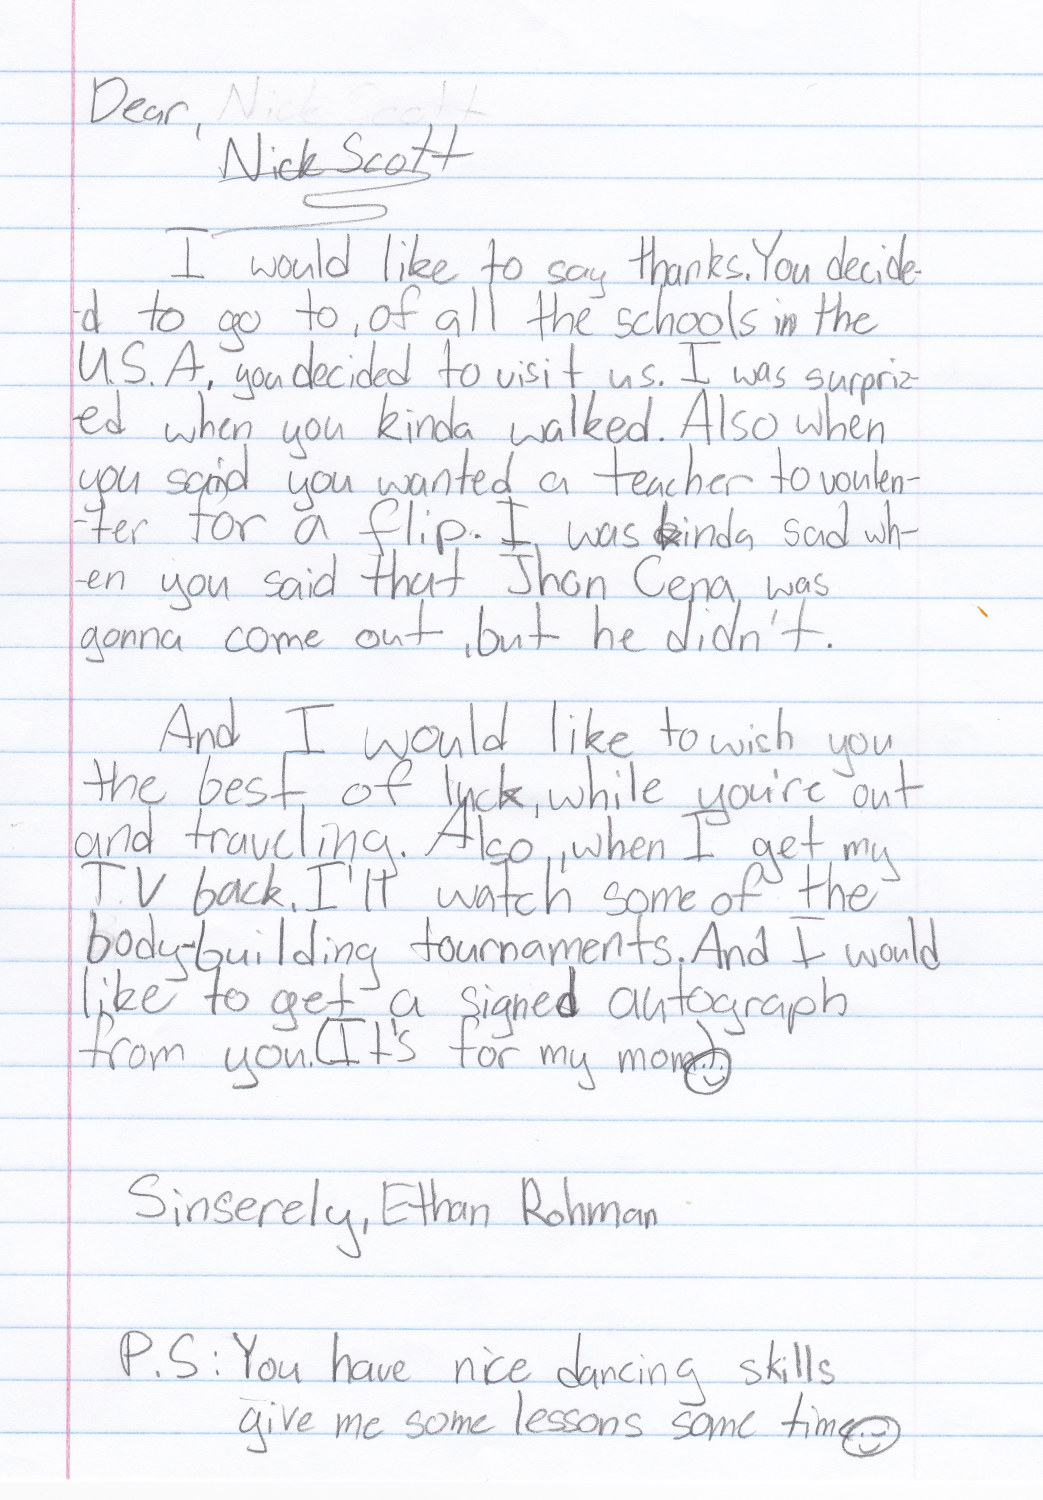 Dear, Nick Scott
Nick Scott
I would like to say thanks. You decide-
-d to go to, of all the schools in the
U.S.A, you decided to visit us. I was surpriz-
ed when you kinda walked. Also when
you said you wanted a teacher to voulen-
-ter for a flip. I was kinda sad wh-
-en you said that Jhon Cena was
gonna come out, but he didn't.
And I would like to wish you
the best of luck, while you're out
and traveling. Also, when I get my
T.V back, I'll watch some of the
body-building tournaments. And I would
like to get a signed autograph
from you. (It's for my mom)
Sinserely, Ethan Rohman
P.S: You have nice dancing skills
give me some lessons some time